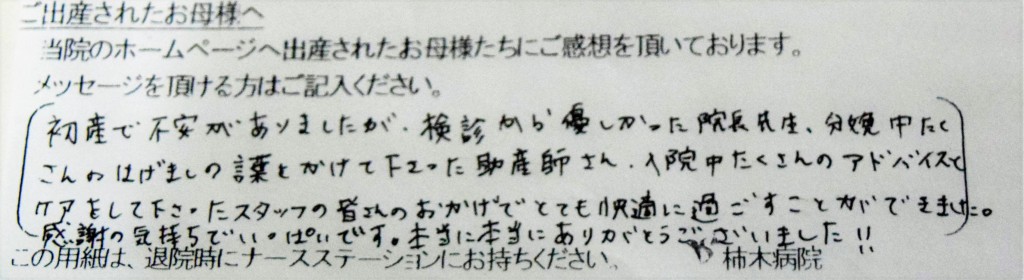 ご出産されたお母様へ
当院のホームページへ出産されたお母様たちにご感想を頂いております。
メッセージを頂ける方はご記入ください。
初産で不安がありましたが、検診から優しかった院長先生、分娩中たく
さんのはげましの言葉をかけて下さった助産師さん、入院中たくさんのアドバイスと
ケアをして下さったスタッフの皆さんのおかげでとても快適に過ごすことができました。
感謝の気持ちでいっぱいです。本当に本当にありがとうございました!!
この用紙は、退院時にナースステーションにお持ちください。 柿木病院